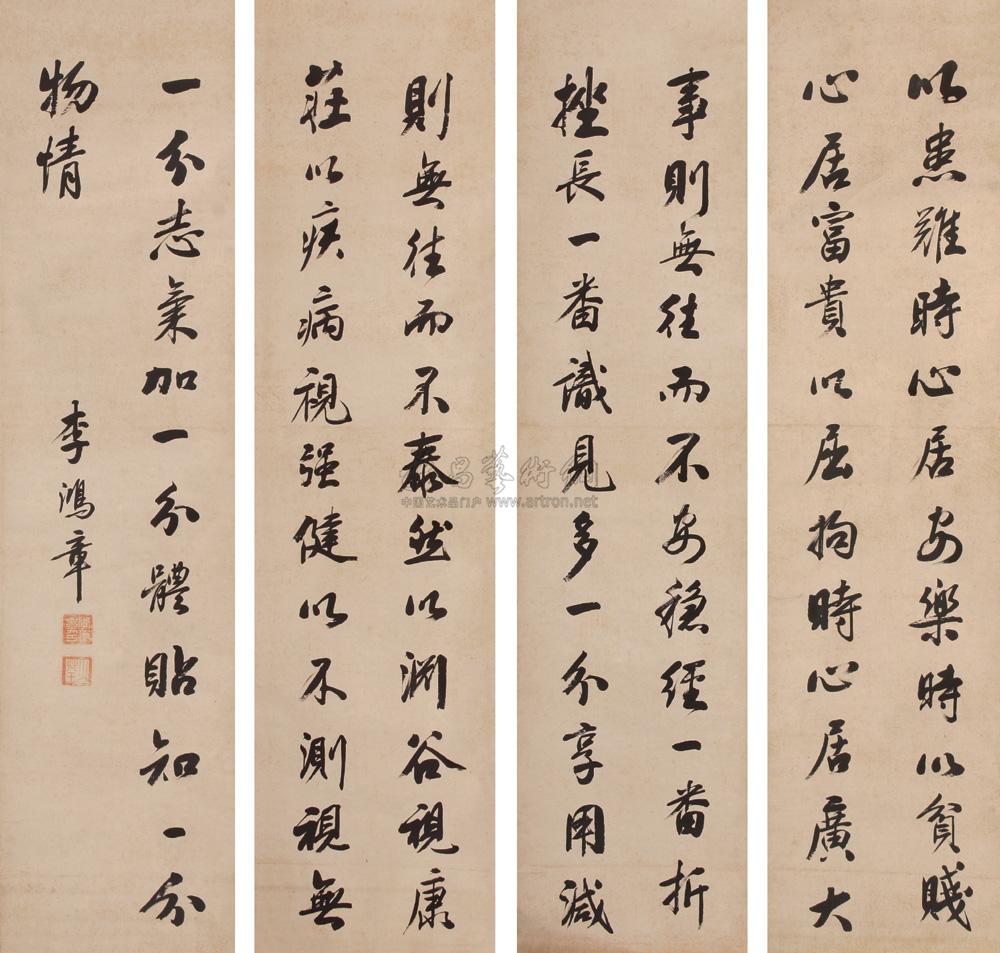 以患難時心居安樂時以貧賤
心居富貴以屈拘時心居廣大
則無往而不泰然以淵谷視康
莊以疾病視强健以不測視無
事則無往而不安穩經一番折
挫長一番識見多一分享用減
一分志氣加一分體貼知一分
物情
李鴻章
昌藝術網
中国艺术品门户 www.artron.net